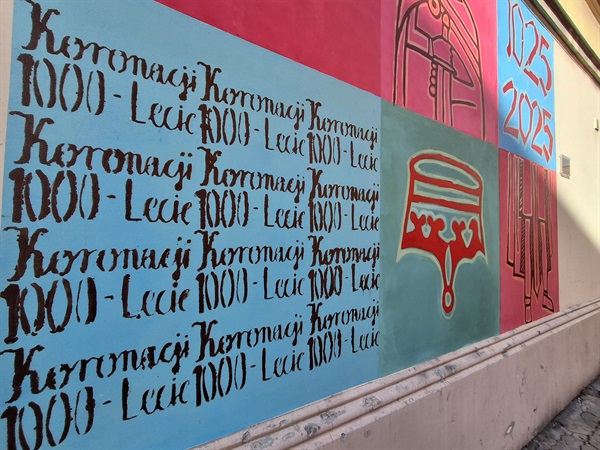 Koronacji Koronacji Koronacji
1000-Lecie 1000-Lecie 1000-Lecie
Koronacji Koronacji Koronacji
1000-Lecie 1000-Lecie 1000-Lecie
Koronacji Koronacji Koronacji
1000-Lecie 1000-Lecie 1000-Lecie
Koronacji Koronacji Koronacji
1000-Lecie 1000-Lecie 1000-Lecie
1025
2025